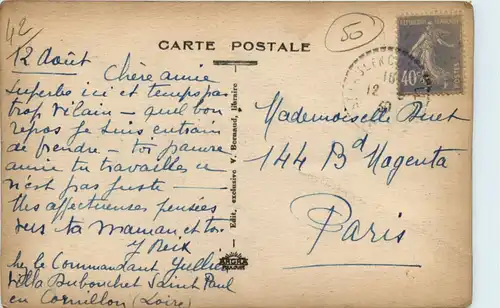 42
50
CARTE POSTALE
12 août
Chère amie
Superbe ici et temps pas
trop vilain — quel bon
repos je suis entrain
de prendre — toi pauvre
amie tu travailles ce
n'est pas juste —
Mes affectueuses pensées
vers ta Maman et toi.
chez le Commandant
Villa Dubouchet Saint Paul
en Cornillon (Loire)
Edit. exclusive V. Bernaud, libraire
REPUBLIQUE FRANCAISE
40c
POSTES
12
Mademoiselle
144 Bd Magenta
Paris